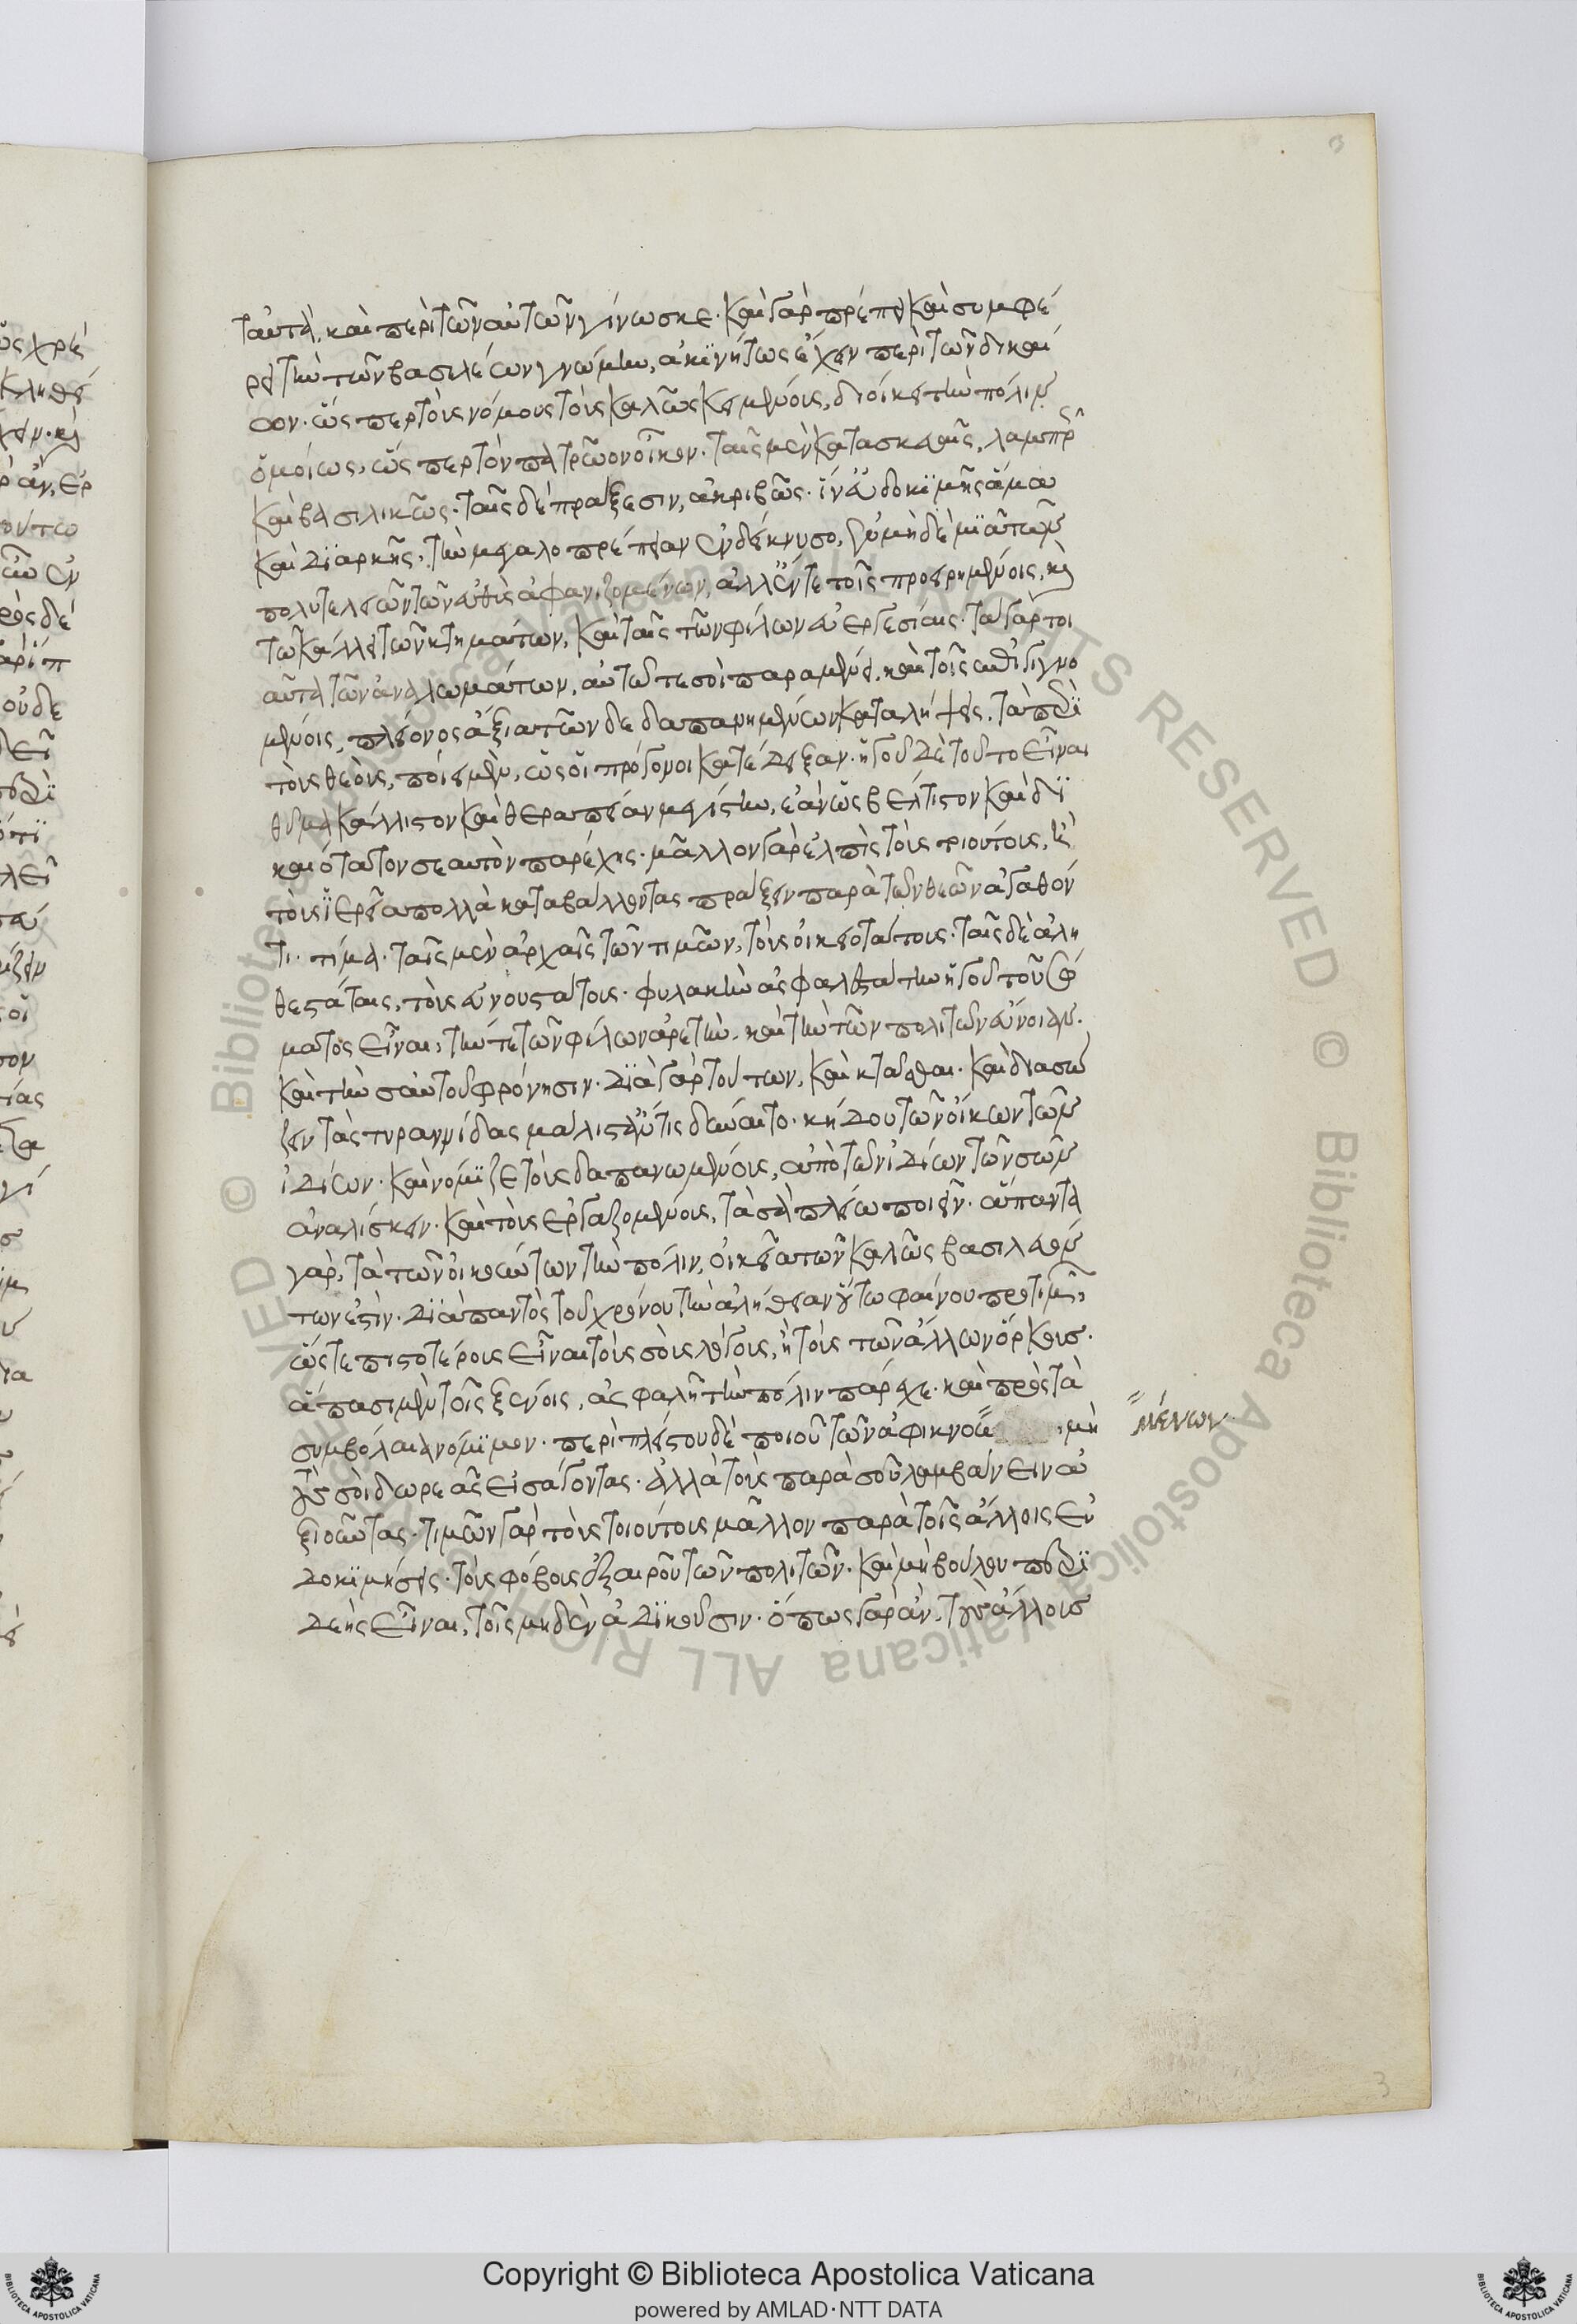 ταὐτὰ, καὶ περὶ τῶν αὐτῶν γίνωσκε· καὶ γὰρ πρέπει καὶ συμφέ
ρει τὴν τῶν βασιλέων γνώμην, ἀκϊνήτως ἔχειν περὶ τῶν δικαί
ων· ὥς περ τοὺς νόμους τοὺς καλῶς κειμένους, διοίκει τὴν πόλιν
ὁμοίως, ὥς περ τὸν πατρῶον οἶκον· ταῖς μὲν κατασκευαῖς, λαμπρῶς
καὶ βασιλικῶς· ταῖς δὲ πράξεσιν, ἀκριβῶς· ἵν' εὐδοκϊμῇς ἅμα
καὶ διαρκῇς, τὴν μεγαλοπρέπειαν ἐνδείκνυσο, μὴ δὲ μϊᾷ τῶν
πολυτελειῶν τῶν εὐθὺς ἀφανιζομένων, ἀλλ' ἔν τε τοῖς προειρημένοις, καὶ
τῷ κάλλει τῶν κτημάτων, καὶ ταῖς τῶν φίλων εὐεργεσίαις· τὰ γὰρ τοι
αῦτα τῶν ἀναλωμάτων, αὐτῷ τε σοὶ παραμένει, καὶ τοῖς ἐπιγιγνο
μένοις, πλείονος ἄξια τῶν δεδαπανημένων καταλήψεις. τὰ περὶ
τοὺς θεοὺς, ποίει μὲν, ὡς οἱ πρόγονοι κατέδειξαν· ἡγοῦ δὲ τοῦτο εἶναι
θῦμα κάλλιστον καὶ θεραπείαν μεγίστην, ἐὰν ὡς βέλτιστον καὶ δϊ
καιότατον σεαυτὸν παρέχῃς· μᾶλλον γὰρ ἐλπὶς τοὺς τοιούτους, ἢ
τοὺς ἱερεῖα πολλὰ καταβάλλοντας πράξειν παρὰ τῶν θεῶν ἀγαθόν
τι· τίμα· ταῖς μὲν ἀρχαῖς τῶν τιμῶν, τοὺς οἰκειοτάτους· ταῖς δὲ ἀλη
θεστάταις, τοὺς εὐνουστάτους· φυλακὴν ἀσφαλεστάτην ἡγοῦ τοῦ σώ
ματος εἶναι, τήν τε τῶν φίλων ἀρετὴν, καὶ τὴν τῶν πολιτῶν εὔνοιαν·
καὶ τὴν σαυτοῦ φρόνησιν· δϊὰ γὰρ τούτων, καὶ κτᾶσθαι· καὶ διασώ
ζειν τὰς τυραννίδας μάλιστ' ἄν τις δύναιτο· κήδου τῶν οἴκων τῶν
ἰδίων· καὶ νόμϊζε τοὺς δαπανωμένους, ἀπὸ τῶν ἰδίων τῶν σῶν
ἀναλίσκειν· καὶ τοὺς ἐργαζομένους, τὰ σὰ πλείω ποιεῖν· ἅπαντα
γὰρ, τὰ τῶν οἰκούντων τὴν πόλιν, οἰκεῖα τῶν καλῶς βασιλευόν
των ἐστίν· δϊὰ παντὸς τοῦ χρόνου τὴν ἀλήθειαν οὕτω φαίνου προτιμῶν,
ὥστε πιστοτέρους εἶναι τοὺς σοὺς λόγους, ἢ τοὺς τῶν ἄλλων ὅρκους·
ἅπασι μὲν τοῖς ξένοις, ἀσφαλῆ τὴν πόλιν πάρεχε· καὶ πρὸς τὰ
συμβόλαια νόμϊμον· περὶ πλείστου δὲ ποιοῦ τῶν ἀφικνου , μὴ
μένων
τοὺς σοὶ δωρεὰς εἰσάγοντας· ἀλλὰ τοὺς παρὰ σοῦ λαμβάνειν ἀ
ξιοῦντας· τιμῶν γὰρ τοὺς τοιούτους μᾶλλον παρὰ τοῖς ἄλλοις εὐ
δοκϊμήσεις· τοὺς φόβους ἐξαιροῦ τῶν πολιτῶν· καὶ μὴ βούλου περὶ
δεὴς εἶναι, τοῖς μηδὲν ἀδϊκοῦσιν· ὅπως γὰρ ἂν, τοὺς ἄλλους